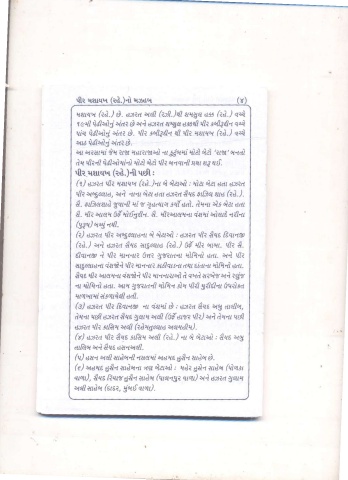 પીર મશાયખ (રહે.)નો મઝહબ (૪)
મશાયખ (રહે.) છે. હઝરત અલી (રઝી.)થી શમશુલ હક (રહે.) વચ્ચે
૧૯મી પેઢીઓનું અંતર છે અને હઝરત શમ્શુલ હકથી પીર કબીરુદ્દીન વચ્ચે
પાંચ પેઢીઓનું અંતર છે. પીર કબીરૂદ્દીન થી પીર મશાયખ (રહે.) વચ્ચે
આઠ પેઢીઓનું અંતર છે.
આ અરસામાં જેમ રાજા મહારાજાઓ ના કુટુંબમાં મોટો બેટો 'રાજા' બનતો
તેમ પીરની પેઢીઓમાંનો મોટો બેટો પીર બનવાની પ્રથા શરૂ થઈ.
પીર મશાયખ (રહે.)ની પછી :
(૧) હઝરત પીર મશાયખ (રહે.)ના બે બેટાઓ : મોટા બેટા હતા હઝરત
પીર અબ્દુલ્લાહ, અને નાના બેટા હતા હઝરત સૈયદ ફાઝિલ શાહ (રહે.).
સૈ. ફાઝિલશાહે જુવાની માં જ ગૃહત્યાગ કર્યો હતો. તેમના એક બેટા હતા
સૈ. પીર આલમ ઉર્ફે મોઈનુદ્દીન. સૈ. પીરઆલમના વંશમાં ઓલાદે નરીના
(પુરૂષ) બચ્યું નથી.
(૨) હઝરત પીર અબ્દુલ્લાહના બે બેટાઓ : હઝરત પીર સૈયદ દિવાનજી
(રહે.) અને હઝરત સૈયદ સાદુલ્લાહ (રહે.) ઉર્ફે પીર બાવા. પીર સૈ.
દીવાનજી ને પીર માનનાર ઉત્તર ગુજરાતના મોમિનો હતા. અને પીર
સાદુલ્લાહના વંશજોને પીર માનનારે કાઠીયાવાડના તથા દાંતાના મોમિનો હતા.
સૈયદ પીર આલમના વંશજોને પીર માનનારાઓ તે વખતે સરખેજ અને રણુંજ
ના મોમિનો હતા. આમ ગુજરાતની મોમિન કોમ પીરી મુરીદીના ઉપરોક્ત
માળખામાં સંકળાયેલી હતી.
(૩) હઝરત પીર દિવાનજી ના વંશમાં છે : હઝરત સૈયદ અબુ તાલીબ,
તેમના પછી હઝરત સૈયદ ગુલામ અલી (ઉર્ફે હાજર પીર) અને તેમના પછી
હઝરત પીર કાસિમ અલી (રહેમતુલ્લાહ અલયહીમ).
(૪) હઝરત પીર સૈયદ કાસિમ અલી (રહે.) ના બે બેટાઓ : સૈયદ અબુ
તાલિબ અને સૈયદ હસનઅલી.
(૫) હસન અલી સાહેબની નસલમાં અહમદ હુસૈન સાહેબ છે.
(૬) અહમદ હુસૈન સાહેબના ત્રણ બેટાઓ : મહેર હુસૈન સાહેબ (ધોળકા
વાળા), સૈયદ રિયાજ હુસૈન સાહેબ (પાલનપુર વાળા) અને હઝરત ગુલામ
અલી સાહેબ (દાદર, મુંબઈ વાળા).